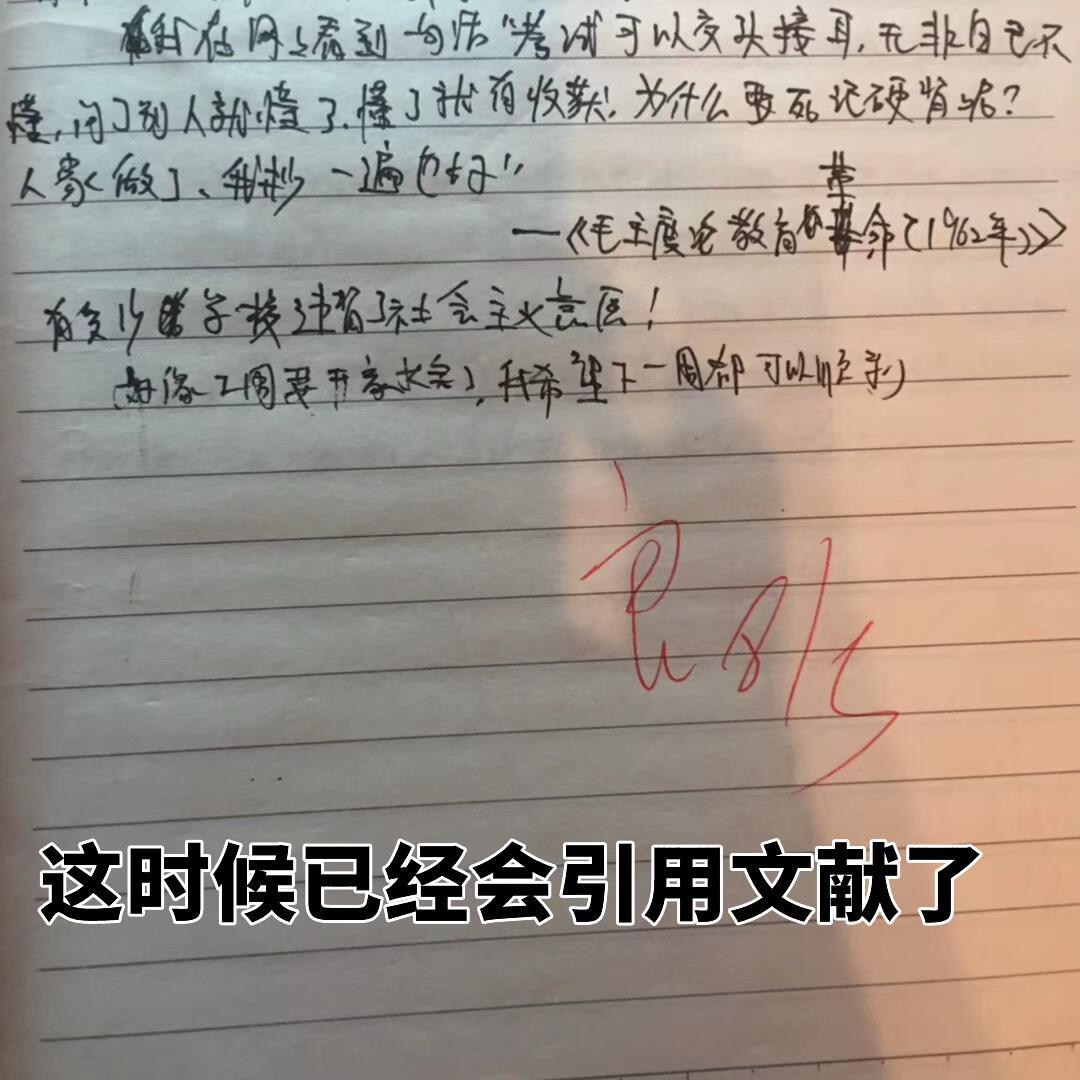 我在网上看到一句话"考试可以交头接耳,无非自己不
懂,问了别人就懂了.懂了就有收获,为什么要死记硬背呢?
人家做了、我抄一遍也好"
——《毛主席论教育革命(1962年)》
有多少学校违背了社会主义意愿!
(好像工周要开家长会),我希望下一周都可以顺利)
阅 8/5
这时候已经会引用文献了